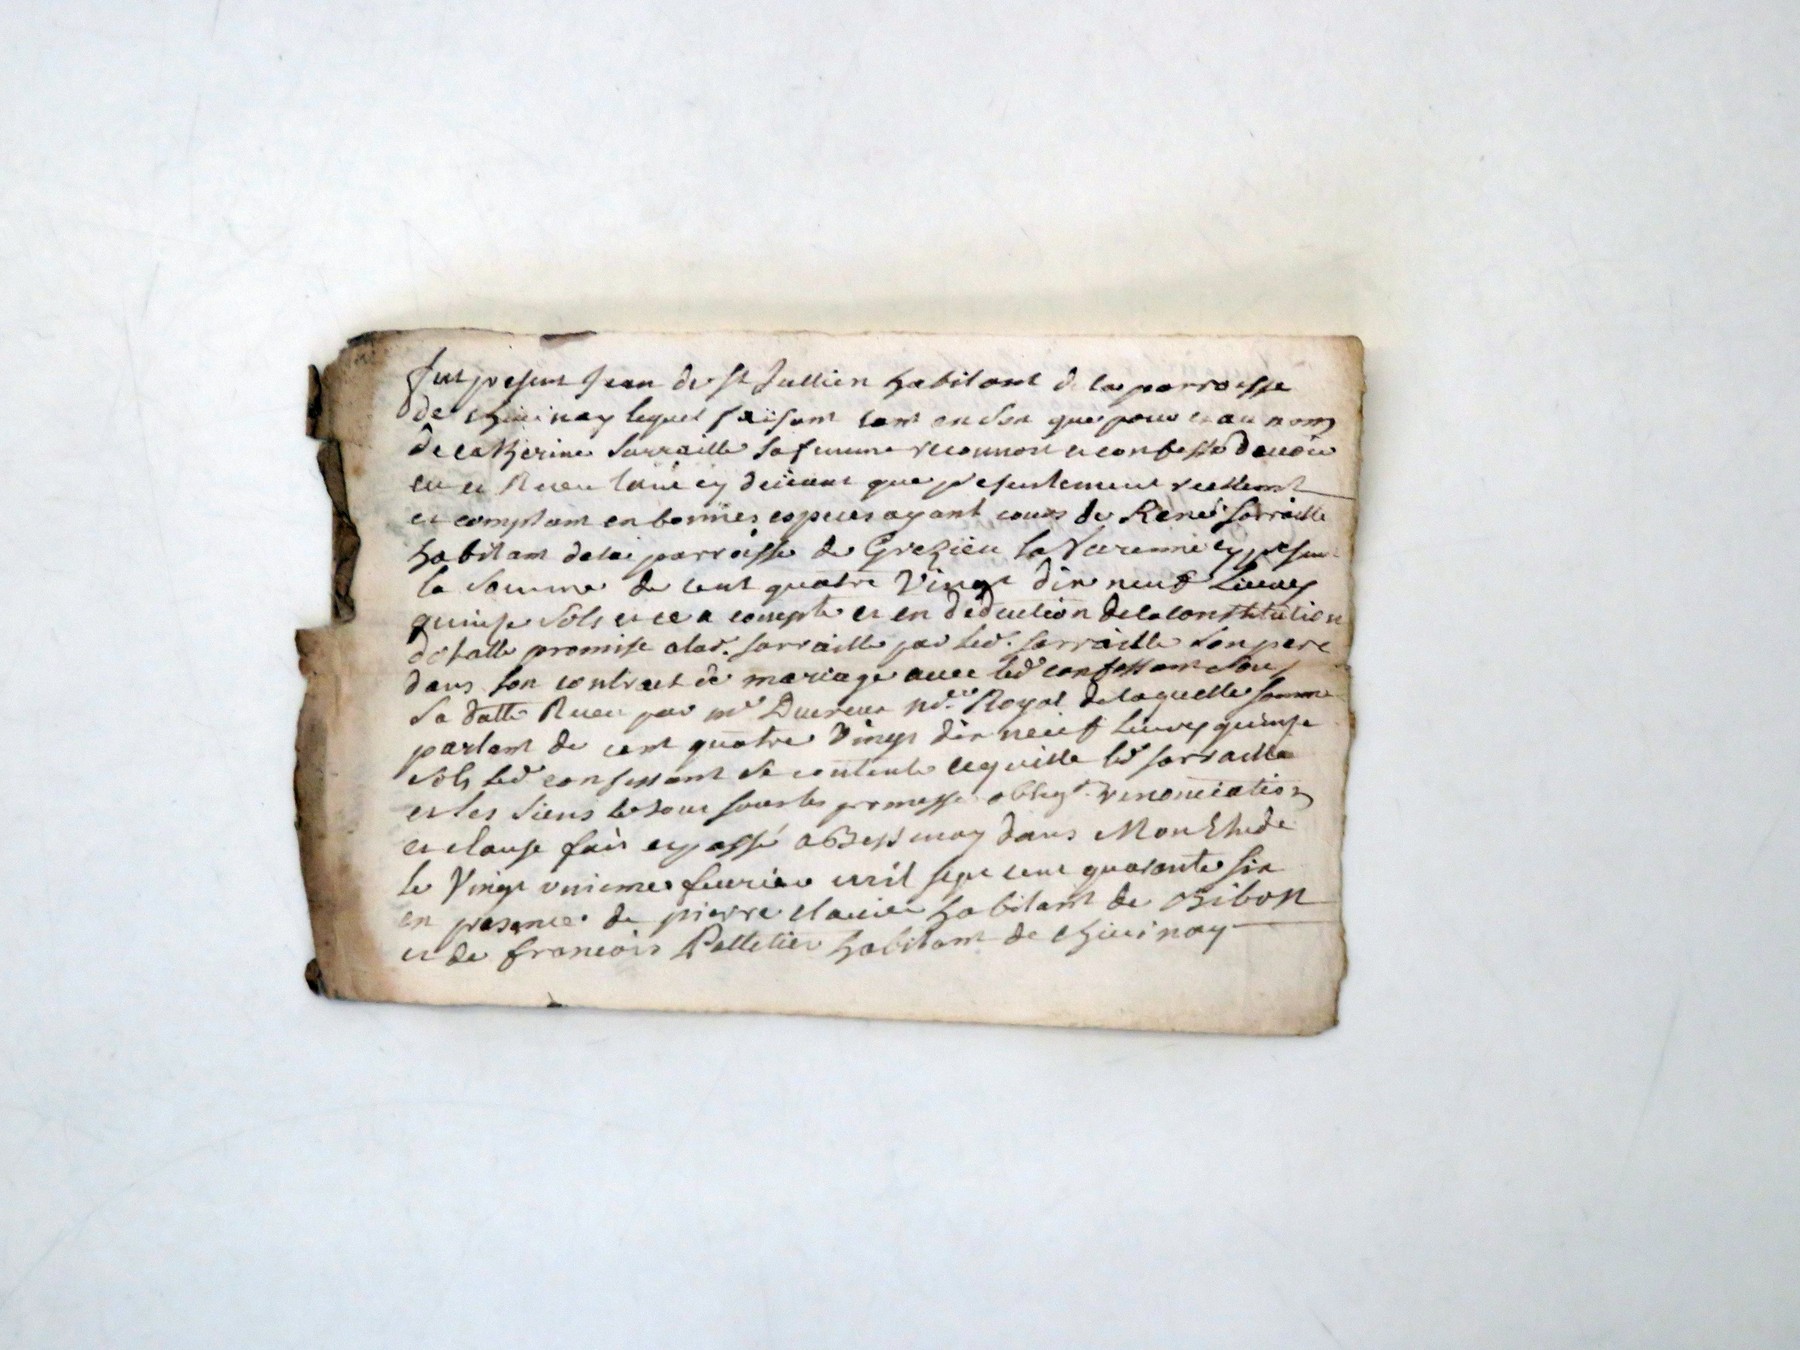 fut present Jean de St Jullien habitant de la parroisse
de Chivinay lequel faisant tant en son que pour et au nom
de Catherine Sarraille sa femme reconnoit et confesse d'avoir
eu et Receu tant cy devant que presentement reellemt
et comptant en bonnes especes ayant cours de René Sarraille
habitant de la parroisse de Grezieu la Varenne cy present
la somme de cent quatre Vingt dix neuf Livres
quinse sols et ce a compte et en deduction de la constitution
dotalle promise a lad. sarraille par led. sarraille son pere
dans son contract de mariage avec led confessant sous
sa datte Receu par me Royal de laquelle somme
partant de cent quatre Vingt dix neuf Livres quinse
sols led confessant se contente et quitte led sarraille
et les siens le tout sous les promesse obligt. renonciation
et clause fait et passé a Bessenay dans Mon Etude
le Vingt unieme fevrier mil sept cent quarante six
en presence de pierre habitant de Bibost
et de francois Pelletier habitant de Chivinay